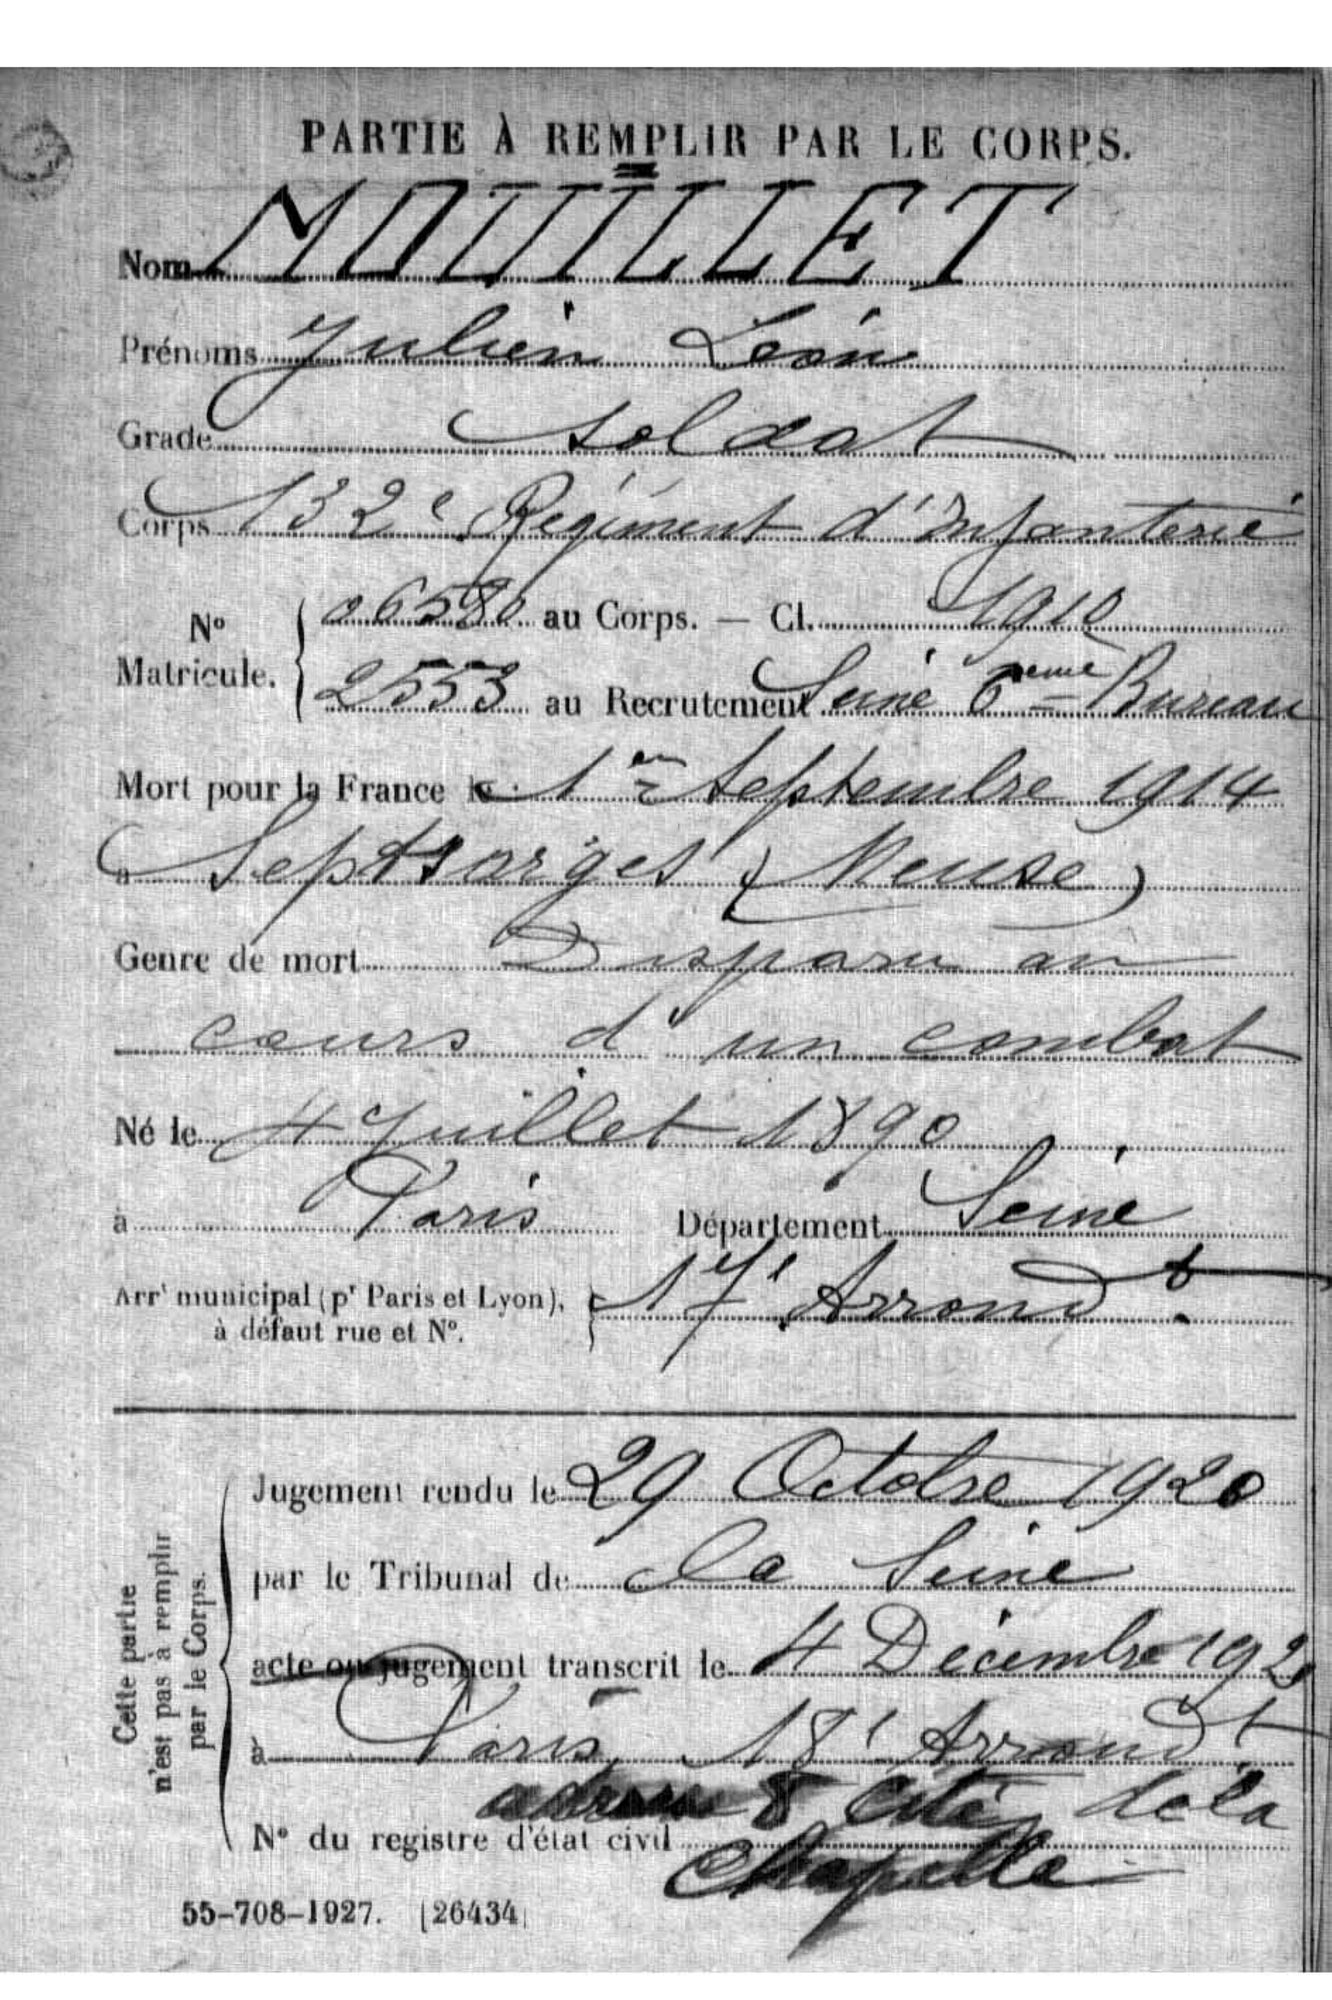 PARTIE À REMPLIR PAR LE CORPS.
Nom MOUILLET
Prénoms Julien Léon
Grade soldat
Corps 132e Régiment d'Infanterie
N° Matricule. 06580 au Corps. — Cl. 1910
2553 au Recrutement Seine 6eme Bureau
Mort pour la France le 1er Septembre 1914
à Septsarges (Meuse)
Genre de mort Disparu au
cours d'un combat
Né le 4 Juillet 1890
à Paris Département Seine
Arrt municipal (pr Paris et Lyon), 17e Arrondt
à défaut rue et N°.
Cette partie
n'est pas à remplir
par le Corps.
Jugement rendu le 29 Octobre 1920
par le Tribunal de la Seine
acte ou jugement transcrit le 4 Décembre 1920
à Paris 18e Arrondt
adresse 8 cité de la
N° du registre d'état civil
Chapelle
55-708-1927. [26434]